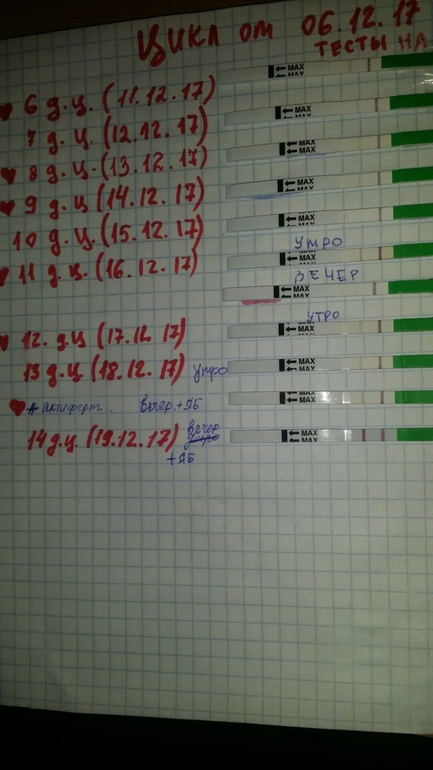 Цикл от 06.12.17
ТЕСТЫ НА
← MAX
MAX
6 д.ц. (11.12.17)
← MAX
MAX
7 д.ц. (12.12.17)
← MAX
MAX
8 д.ц. (13.12.17)
← MAX
MAX
9 д.ц (14.12.17)
← MAX
MAX
10 д.ц. (15.12.17)
УТРО
← MAX
MAX
11 д.ц. (16.12.17)
ВЕЧЕР
← MAX
MAX
УТРО
← MAX
MAX
12. д.ц (17.12.17)
← MAX
MAX
13 д.ц (18.12.17) утро
← MAX
MAX
+ актиферт. Вечер + ЯБ
← MAX
MAX
14 д.ц. (19.12.17) вечер
+ ЯБ